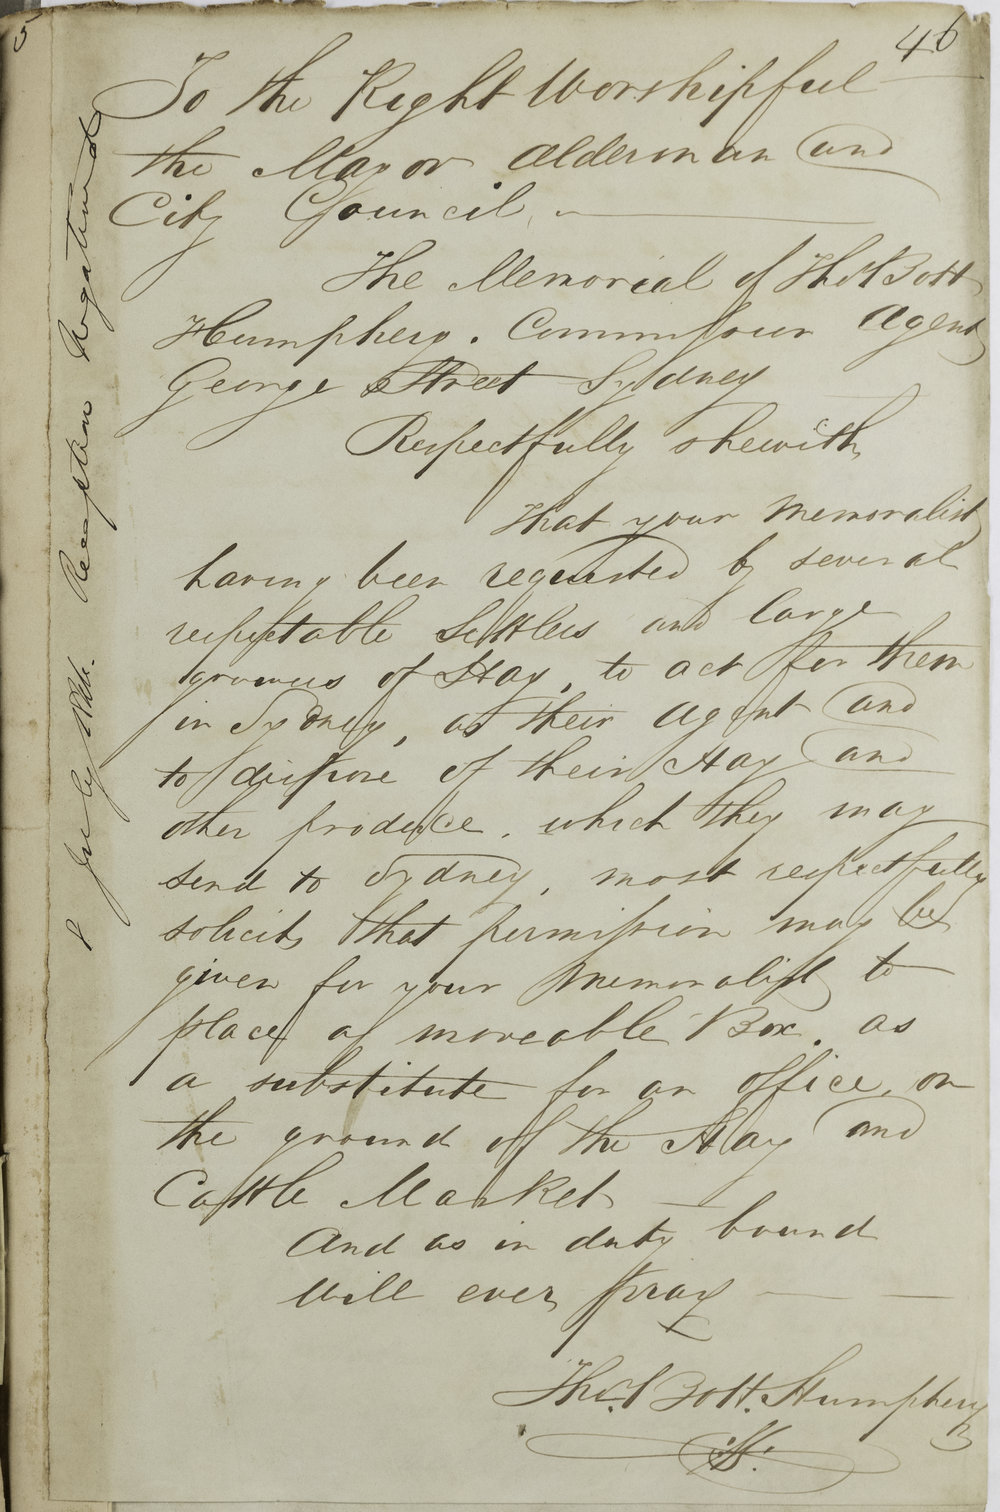 46
5
To the Right Worshipful
the Mayor Alderman and
City Council,
The Memorial of Thos Bott
Humphery. Commissioner Agent
George Street Sydney
Respectfully shewith,
That your Memoralist
having been requested by several
respectable Settlers and large
growers of Hay, to act for them
in Sydney, as their agent and
to dispose of their Hay and
other produce. which they may
send to Sydney, most respectfully
solicits that permission may be
given for your Memoralist to
place a moveable Box. as
a substitute for an office, on
the ground of the Hay and
Cattle Market
And as in duty bound
will ever pray
Thos. Bott. Humphery
July Reception Negatived